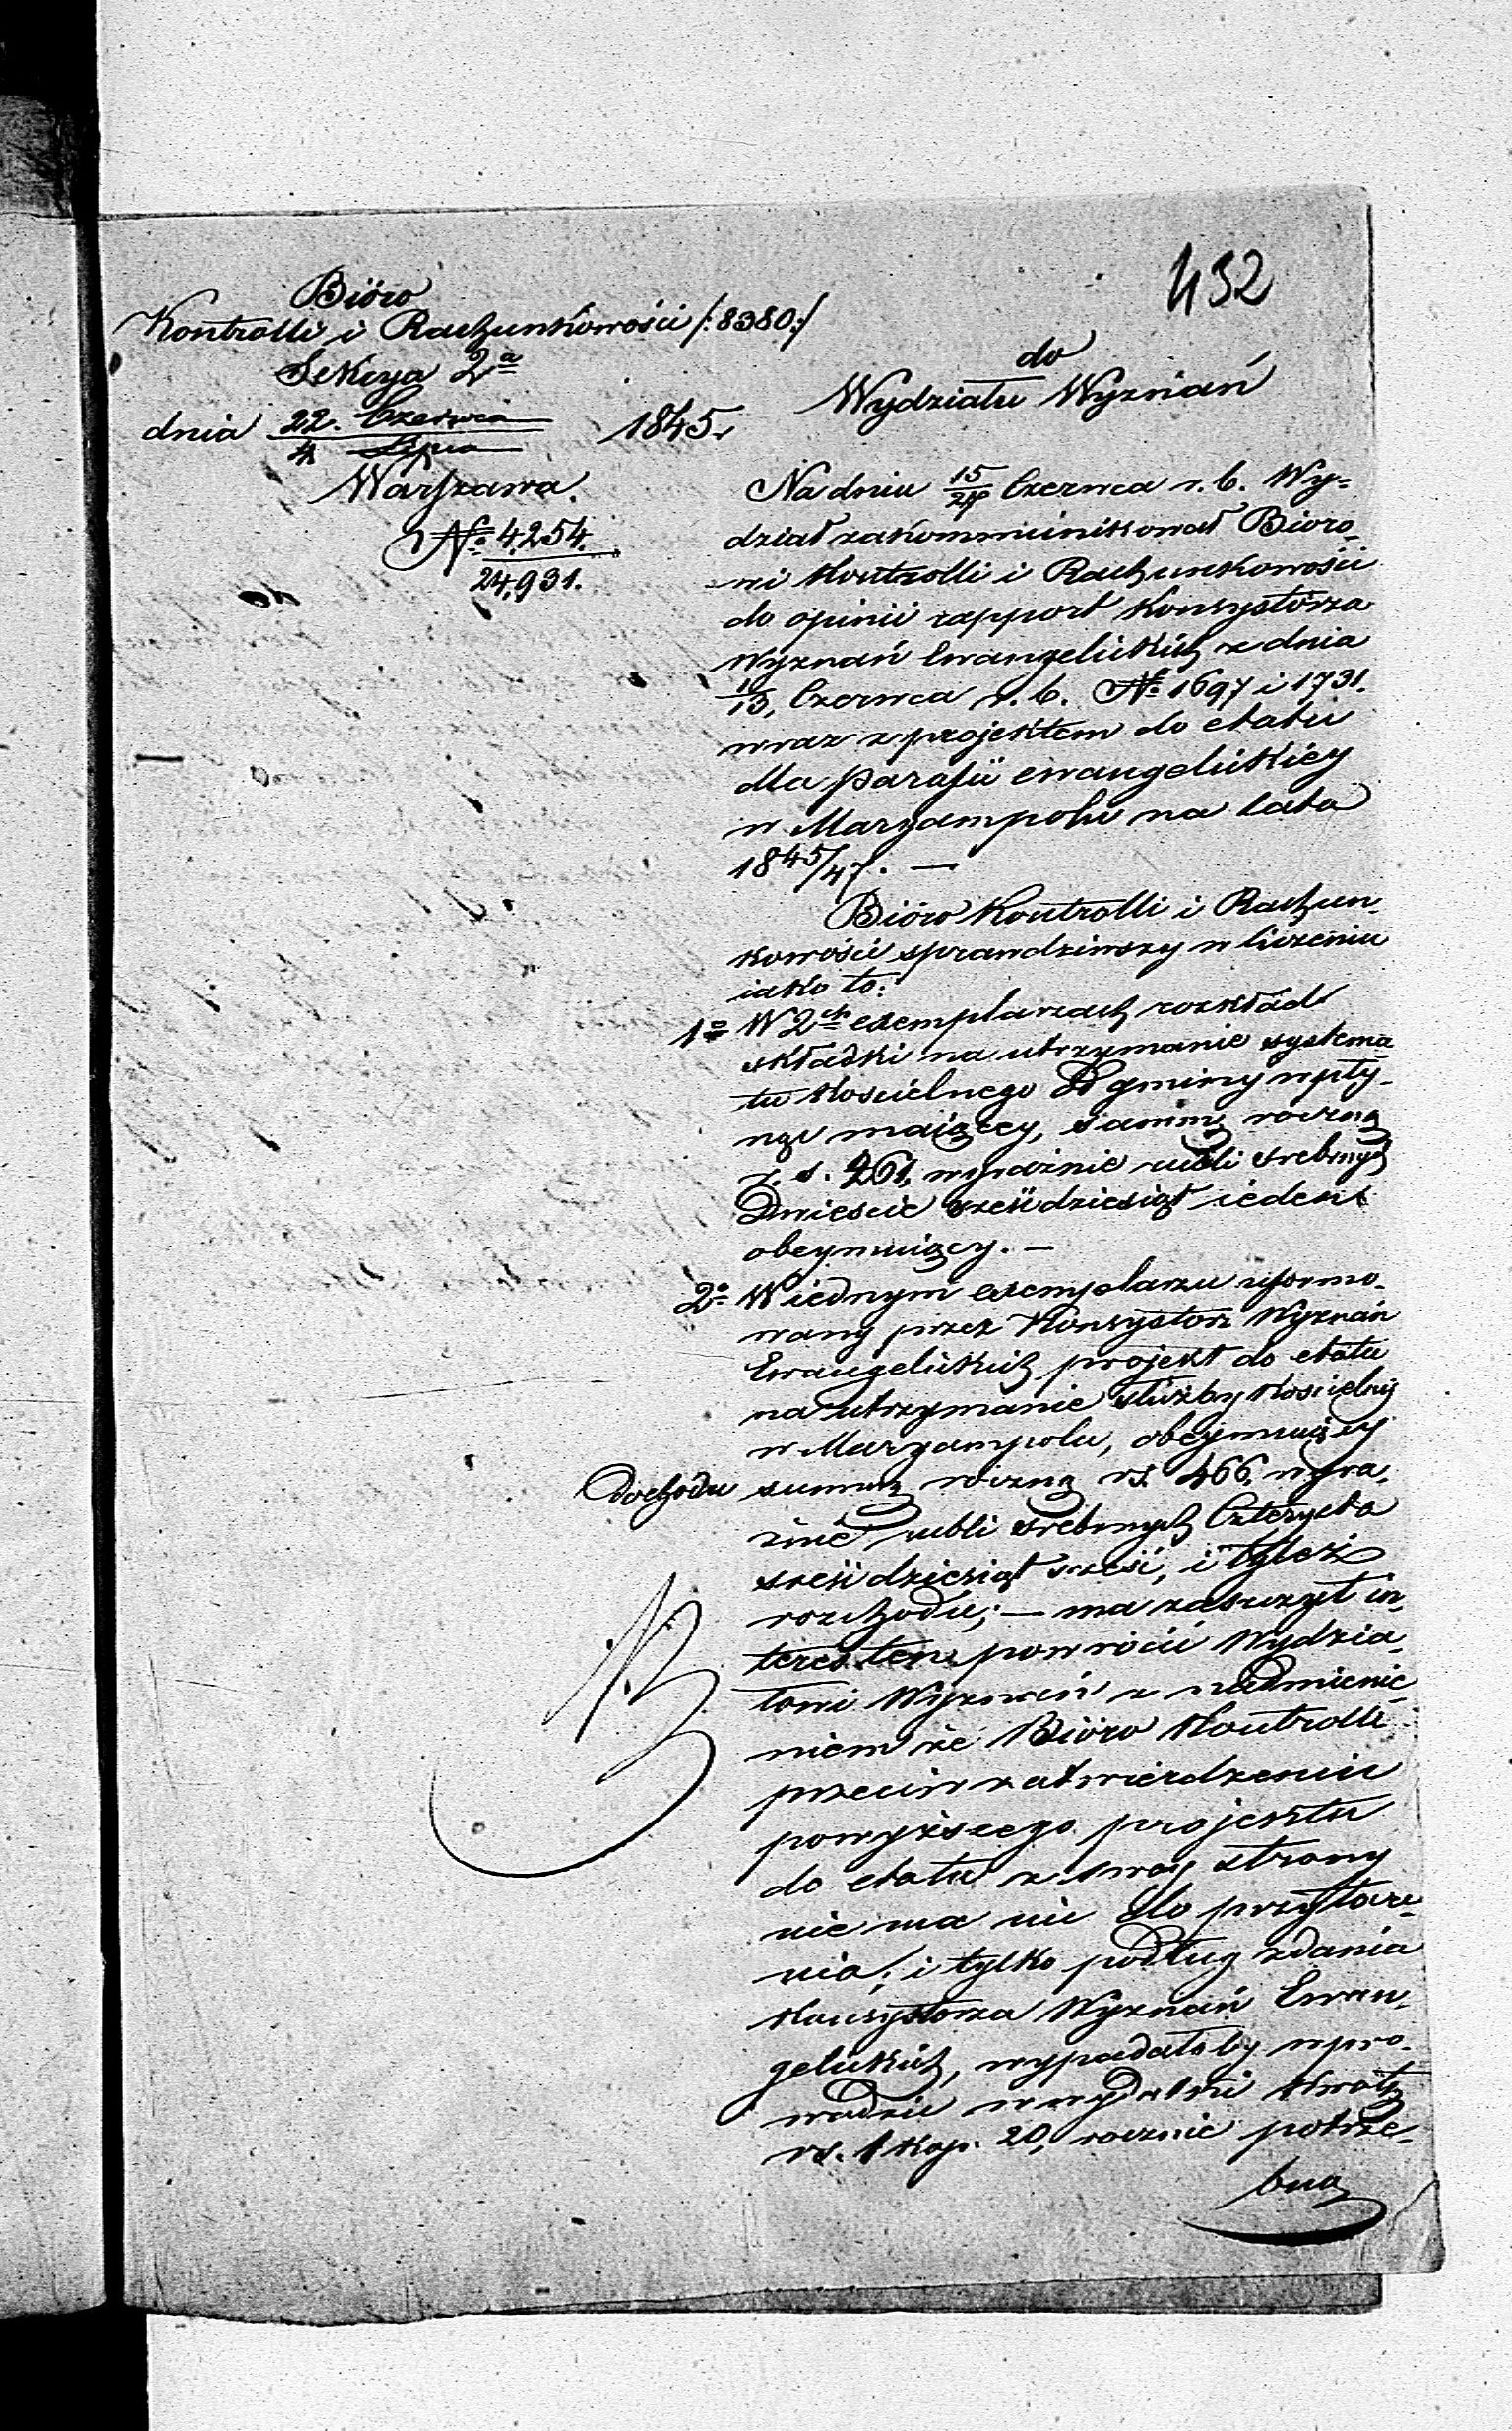 432
Bióro
Kontrolli i Rachunkowości /:8380:/
Sekcya 2a
dnia 22. Czerwca / 4 Lipca 1845.
Warszawa.
No 4254.
24,931.
do
Wydziału Wyznań
Na dniu 15/27 Czerwca r. b. Wy=
dział zakommunikował Bióro-
wi Kontrolli i Rachunkowości
do opinii rapport Konsystorza
Wyznań Ewangelickich z dnia
1/13, Czerwca r. b. No 1697 i 1731.
wraz z projektem do etatu
dla parafii ewangelickiey
w Maryampolu na lata
1845/47. —
Bióro Kontrolli i Rachun-
kowości sprawdziwszy w liczeniu
iako to:
1o W 2ch exemplarzach rozkład
składki na utrzymanie systema-
tu kościelnego z gminy wpły-
nąć maiącey, summę roczną
r. s. 261, wyraźnie rubli srebrnych
Dwieście sześćdziesiąt ieden
obeymuiący. —
2o W iednym exemplarzu uformo-
wany przez Konsystorz Wyznań
Ewangelickich projekt do etatu
na utrzymanie służby kościelnéj
w Maryampolu, obejmuiący
dochodu summę roczną rs. 466. wyra-
źnie rubli srebrnych Czterysta
sześćdziesiąt sześć, i tyleż
rozchodu; — ma zaszczyt in-
teres ten powrócić Wydzia-
łowi Wyznań z nadmienie-
niem że Bióro Kontrolli
przeciw zatwierdzeniu
powyższego projektu
do etatu z swey strony
nie ma nic do przytocze-
nia; i tylko podług zdania
Konsystorza Wyznań Ewan-
gelickich, wypadałoby wpro-
wadzić w wydatki kwotę
rs. 1 kop. 20, rocznie potrze-
bną